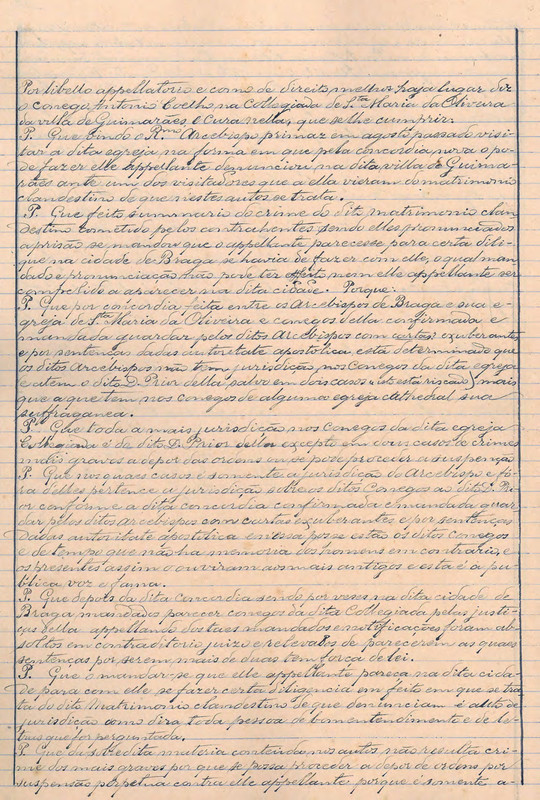 Por libello appellatorio e como de direito melhor haja lugar diz
o conego Antonio Coelho na Collegiada de S.ta Maria da Oliveira
da villa de Guimarães e Cura nella, que se lhe cumprir:
P. Que vindo o R.mo Arcebispo primaz em agosto passado visi-
tar a dita egreja na forma em que pela concordia nova o po-
de fazer elle appellante denunciou na dita villa de Guima-
rães ante um dos visitadores que a ella vieram do matrimonio
clandestino de que nestes autos se trata.
P. Que feito summario do crime do dito matrimonio clan-
destino cometido pelos contrahentes sendo elles pronunciados
a prisão se mandou que o appellante parecesse para certa dili-
que na cidade de Braga se havia de fazer com elle, o qual man-
dado e pronunciação não pode ter effeito nem elle appellante ser
compellido a aparecer na dita cidade. Porque:
P. Que por concordia feita entre os Arcebispos de Braga e sua e-
greja de S.ta Maria da Oliveira e conegos della confirmada e
mandada guardar pelos ditos Arcebispos com cartas exuberantes
e por sentenças dadas autoritate apostolica, está determinado que
os ditos Arcebispos não tem jurisdição nos conegos da dita egreja
e atem o dito D. Prior della salvo em dois casos (isto está riscado) mais
que a que tem nos conegos de alguma egreja cathedral sua
suffraganea.
P. Que toda a mais jurisdição nos conegos da dita egreja
Collegiada é do dito D. Prior della excepto em dous casos de crimes
mais graves a depor das ordens ou se possa proceder a suspenção
P. Que nos quaes casos é somente a jurisdição do Arcebispo e fó-
ra delles pertence a jurisdição sobre os ditos Conegos ao dito D. Pri-
or conforme a dita concordia confirmada e mandada guar-
dar pelos ditos Arcebispos com cartas exuberantes e por sentenças
dadas autoritate apostolica en essa posse estão os ditos conegos
e de tempo que não ha memoria dos homens em contrario, e
os presentes assim o ouviram aos mais antigos e esta é a pu-
blica voz e fama.
P. Que depois da dita concordia sendo por vezes na dita cidade de
Braga mandados parecer conegos da dita Collegiada pelas justi-
ças della appellando dos taes mandados e notificações foram ab-
soltos em contraditorio juizo e relevados de parecerem as quaes
sentenças por serem mais de duas tem força de lei.
P. Que o mandar-se que elle appellante pareça na dita cida-
de para com elle se fazer certa diligencia em feito em que se tra-
ta do dito Matrimonio clandestino de que denunciam é alto de
jurisdição como dira toda pessoa de bom entendimento e de le-
tras que for perguntada.
P. Que da sobredita materia conteuda nos autos não resulta cri-
me dos mais graves por que se possa proceder a depor de ordens por
suspensão perpetua contra elle appellante porque é somente a-